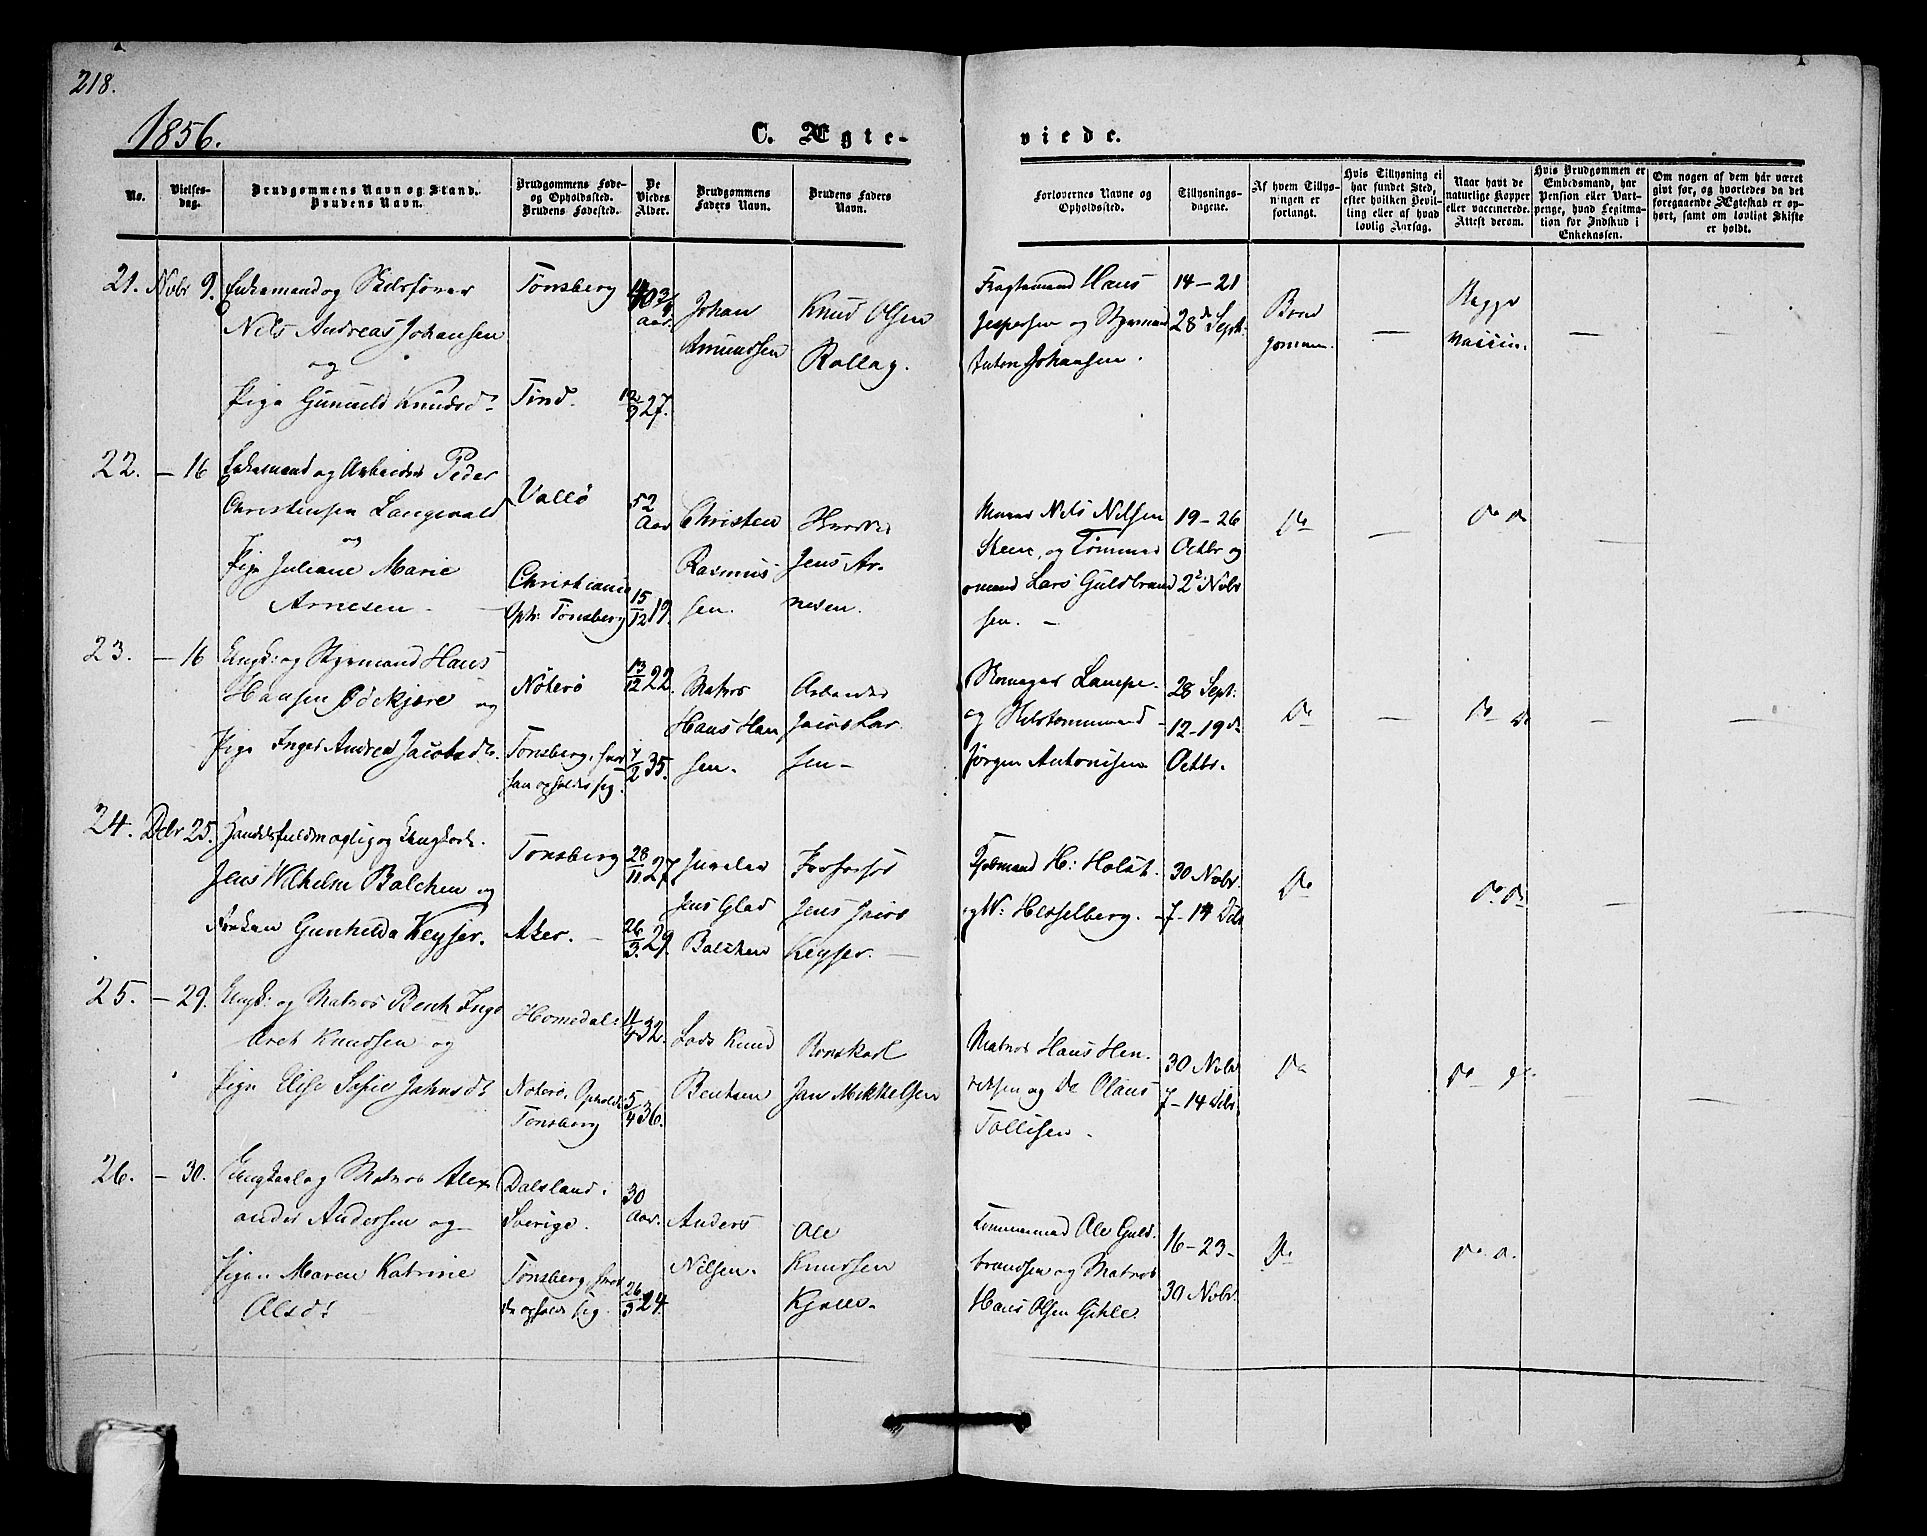 218.
1856.
C. Ægte-
viede.
No.
Vielses-
dag.
Brudgommens Navn og Stand.
Brudens Navn.
Brudgommens Føde-
og Opholdssted.
Brudens Fødested.
De
Viedes
Alder.
Brudgommens
Faders Navn.
Brudens Faders
Navn.
Forlovernes Navne og
Opholdssted.
Tillysnings-
dagene.
Af hvem Tillys-
ningen er
forlangt.
Hvis Tillysning ei
har fundet Sted,
efter hvilken Bevil-
ling eller af hvad
lovlig Aarsag.
Naar havt de
naturlige Kopper
eller vaccinerede.
Attest derom.
Hvis Brudgommen er
Embedsmand, har
Pension eller Vart-
penge, hvad Legitima-
tion for Indskud i
Enkekassen.
Om nogen af dem har været
gift før, og hvorledes da det
foregaaende Ægteskab er op-
hørt, samt om lovligt Skifte
er holdt.
21. Novbr 9. Enkemand og Skibsfører
Nils Andreas Johansen
og
Pige Gunuild Knudsd.
Tönsberg
Tind.
40 3/4
Aar.
12/9 27.
Johan
Amundsen
Knud Olsen
Rollag.
Fragtemand Hans
Jespersen og Styrmand
Anton Johansen.
14-21
28de Sept.
Brud
gommen.
Begge
vaccin.
22. - 16 Enkemand og Arbeider Peder
Christensen Langevald
og
Pige Juliane Marie
Arnesen
Vallö
Christiania
Oph: Tönsberg
52
Aar
15/12 19.
Christen
Rasmus-
sen.
Jens Ar-
nesen.
Nils Nilsen
Steen, og Tömmer
mand Lars Guldbrand
sen.
19-26
Octbr og
2d Novbr
Do
Do Do
23. - 16 Ungk: og Styrmand Hans
Hansen Ödekjære og
Pige Inger Andrea Jacobsdtr.
Nöterö
Tönsberg, hvor
hun opholder sig.
13/12 22.
7/2 35.
Matros
Hans Han
sen.
Arbeider
Jacob Lar
sen
Skomager Lampe
og
Jörgen Antonisen
28 Sept:
12-19de
Octbr.
Do
Do Do
24. Dcbr 25. Handelsfuldmægtig og Ungkarl
Jens Wilhelm Balchen og
Fröken Gunhilda Keyser.
Tönsberg
Aker.
28/11 27.
26/3 29.
Juveler
Jens Glad
Balchen
Professor
Jens Jacob
Keyser.
H: Holst
og W: Hesselberg.
30 Novbr.
7-14 Dcbr
Do
Do. Do
25. - 29. Ungk: og Matros Bent Inge
bret Knudsen og
Pige Elise Sofie Jahnsdtr
Homedal
Nöterö. Opholdr.
Tönsberg
11/4 32.
5/4 36.
Lods Knud
Bentsen
Jan Mikkelsen
Matros Hans Hen
riksen og Do Olaus
Tollisen.
30 Novbr
7-14 Dcbr.
Do
Do
26. - 30. Ungkarl og Matros Alex
ander Andersen og
Pigen Maren Katrine
Olsdtr
Dalsland i
Sverige.
Tönsberg, hvor
de opholde sig.
30
Aar.
26/3 24.
Anders
Nilsen.
Ole
Knudsen
Tömmermand Ole Guld
brandsen og Matros
Hans Olsen Gihle.
16-23-
30 Novbr.
Do
Do. Do.